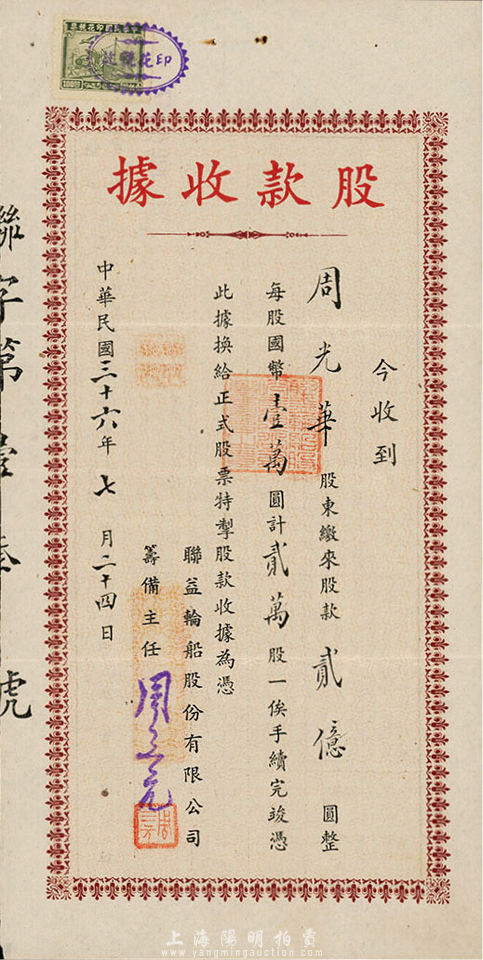 中華民國印花稅票
印花稅訖
股款收據
今收到
周光華股東繳來股款貳億圓整
每股國幣壹萬圓計貳萬股一俟手續完竣憑
此據換給正式股票特掣股款收據為憑
聯益輪船股份有限公司
籌備主任
中華民國三十六年七月二十四日
聯字第壹叁號
上海陽明拍賣
www.yangmingauction.com